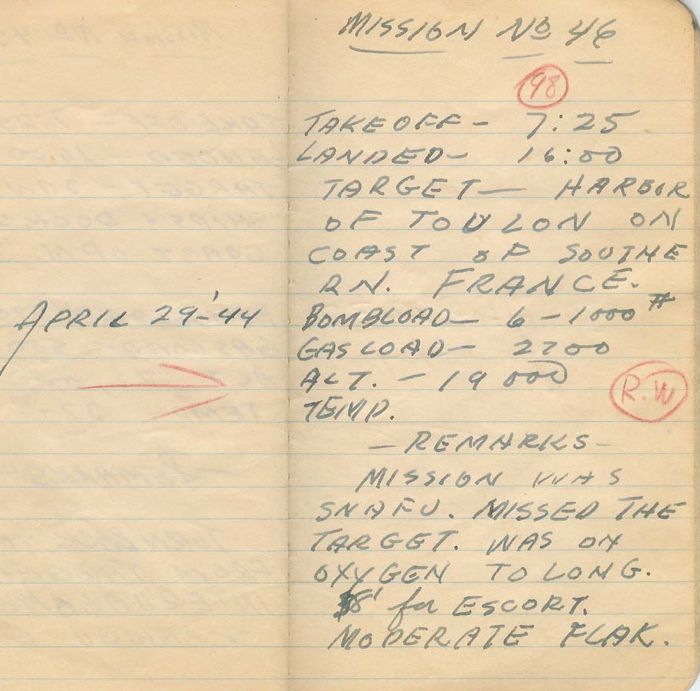 MISSION No 46
98
TAKEOFF- 7:25
LANDED- 16:00
TARGET- HARBOR
OF TOULON ON
COAST OF SOUTHE
RN. FRANCE.
APRIL 29'-44
BOMBLOAD- 6-1000#
GAS LOAD- 2700
ALT. - 19 000
R.W
TEMP.
-REMARKS-
MISSION WAS
SNAFU. MISSED THE
TARGET. WAS ON
OXYGEN TO LONG.
for ESCORT.
MODERATE FLAK.